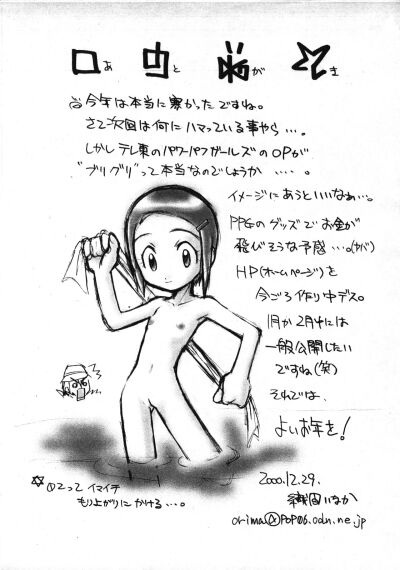 あとがき
今年は本当に寒かったですね。
さて次回は何にハマっている事やら…。
しかしテレ東のパワーパフガールズのOPが
"ブリグリ"って本当なのでしょうか…。
イメージにあうといいなぁ…。
PPGのグッズでお金が
飛びそうな予感…。(ヤバ)
HP(ホームページ)を
今ごろ作り中デス。
1月か2月中には
一般公開したい
ですね(笑)
それでは、
よいお年を!
2000.12.29.
いなか
orima@pop06.odn.ne.jp
☆のこってイマイチ
もり上がりにかける…。